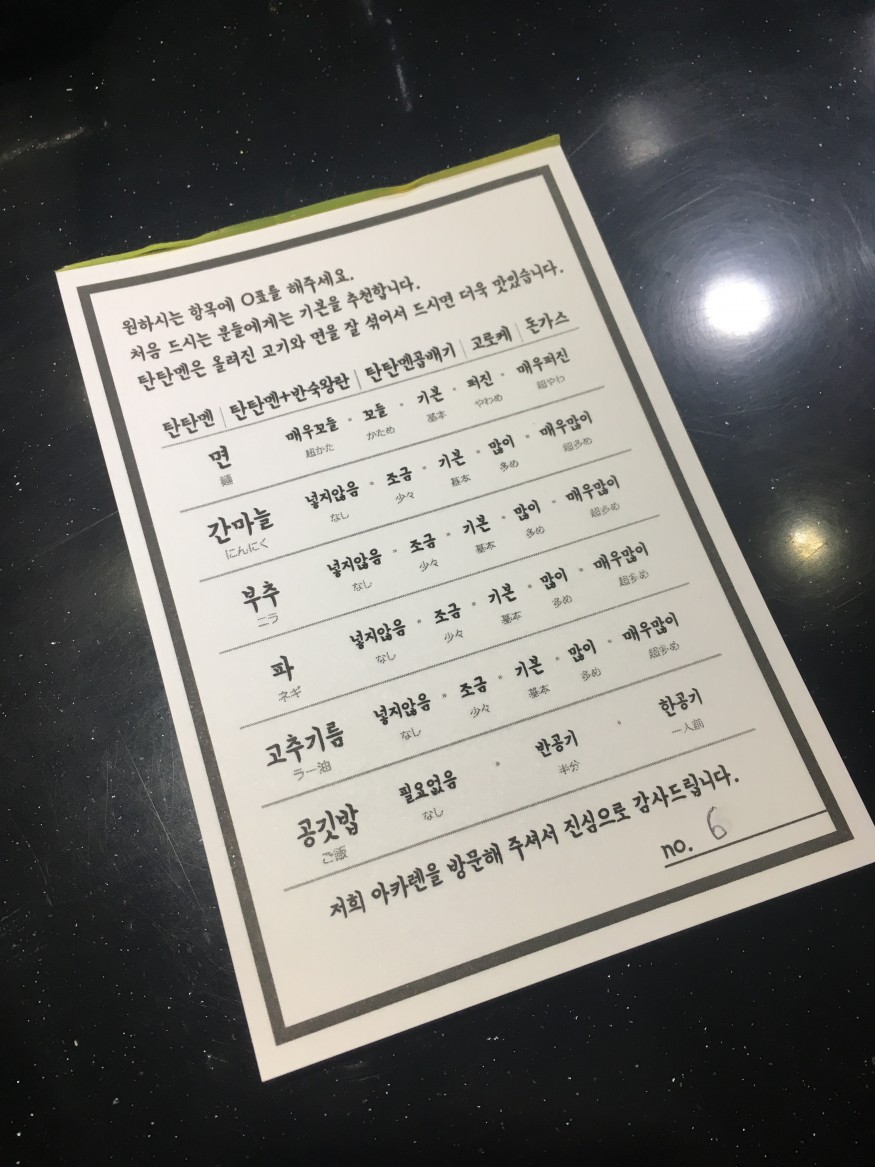 원하시는 항목에 O표를 해주세요.
처음 드시는 분들에게는 기본을 추천합니다.
탄탄멘은 올려진 고기와 면을 잘 섞어서 드시면 더욱 맛있습니다.
탄탄멘 | 탄탄멘+반숙왕란 | 탄탄멘곱배기 | 고로케 | 돈가스
면 매우꼬들 · 꼬들 · 기본 · 퍼진 · 매우퍼진
麺 超かた かため 基本 やわめ 超やわ
간마늘 넣지않음 · 조금 · 기본 · 많이 · 매우많이
にんにく なし 少々 基本 多め 超多め
부추 넣지않음 · 조금 · 기본 · 많이 · 매우많이
ニラ なし 少々 基本 多め 超多め
파 넣지않음 · 조금 · 기본 · 많이 · 매우많이
ネギ なし 少々 基本 多め 超多め
고추기름 넣지않음 · 조금 · 기본 · 많이 · 매우많이
ラー油 なし 少々 基本 多め 超多め
공깃밥 필요없음 · 반공기 · 한공기
ご飯 なし 半分 一人前
저희 아카렌을 방문해 주셔서 진심으로 감사드립니다.
no. 6